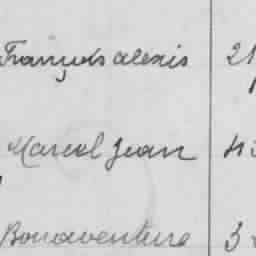 François alexis 21
Marcel Jean 43
Bonaventure 3